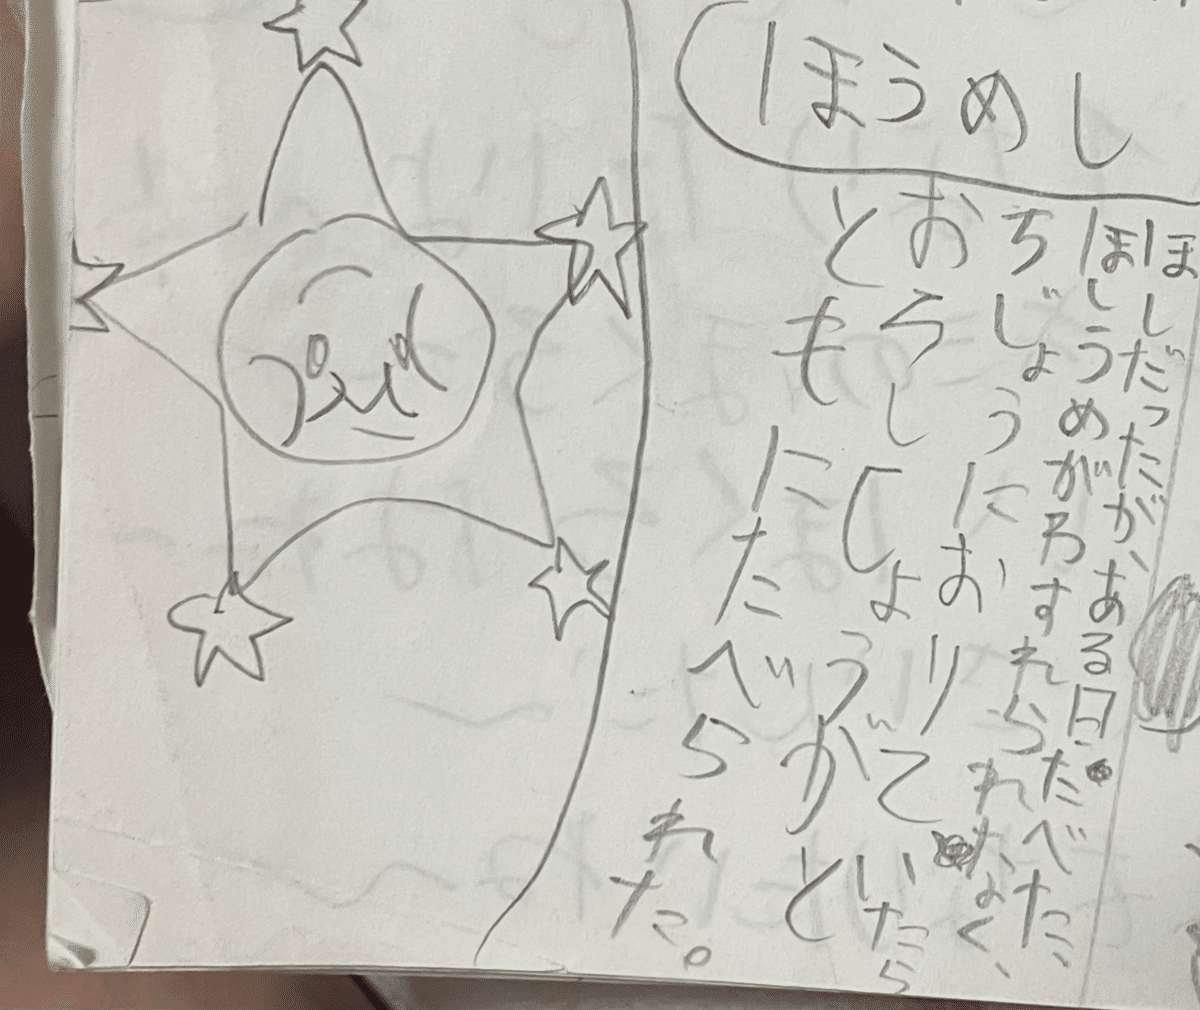 ほうめし
ほしだったが、ある日、たべた、
ほしうめがわすれられなく、
ちじょうにおりていたら
おろししょうがと
ともにたべられた。